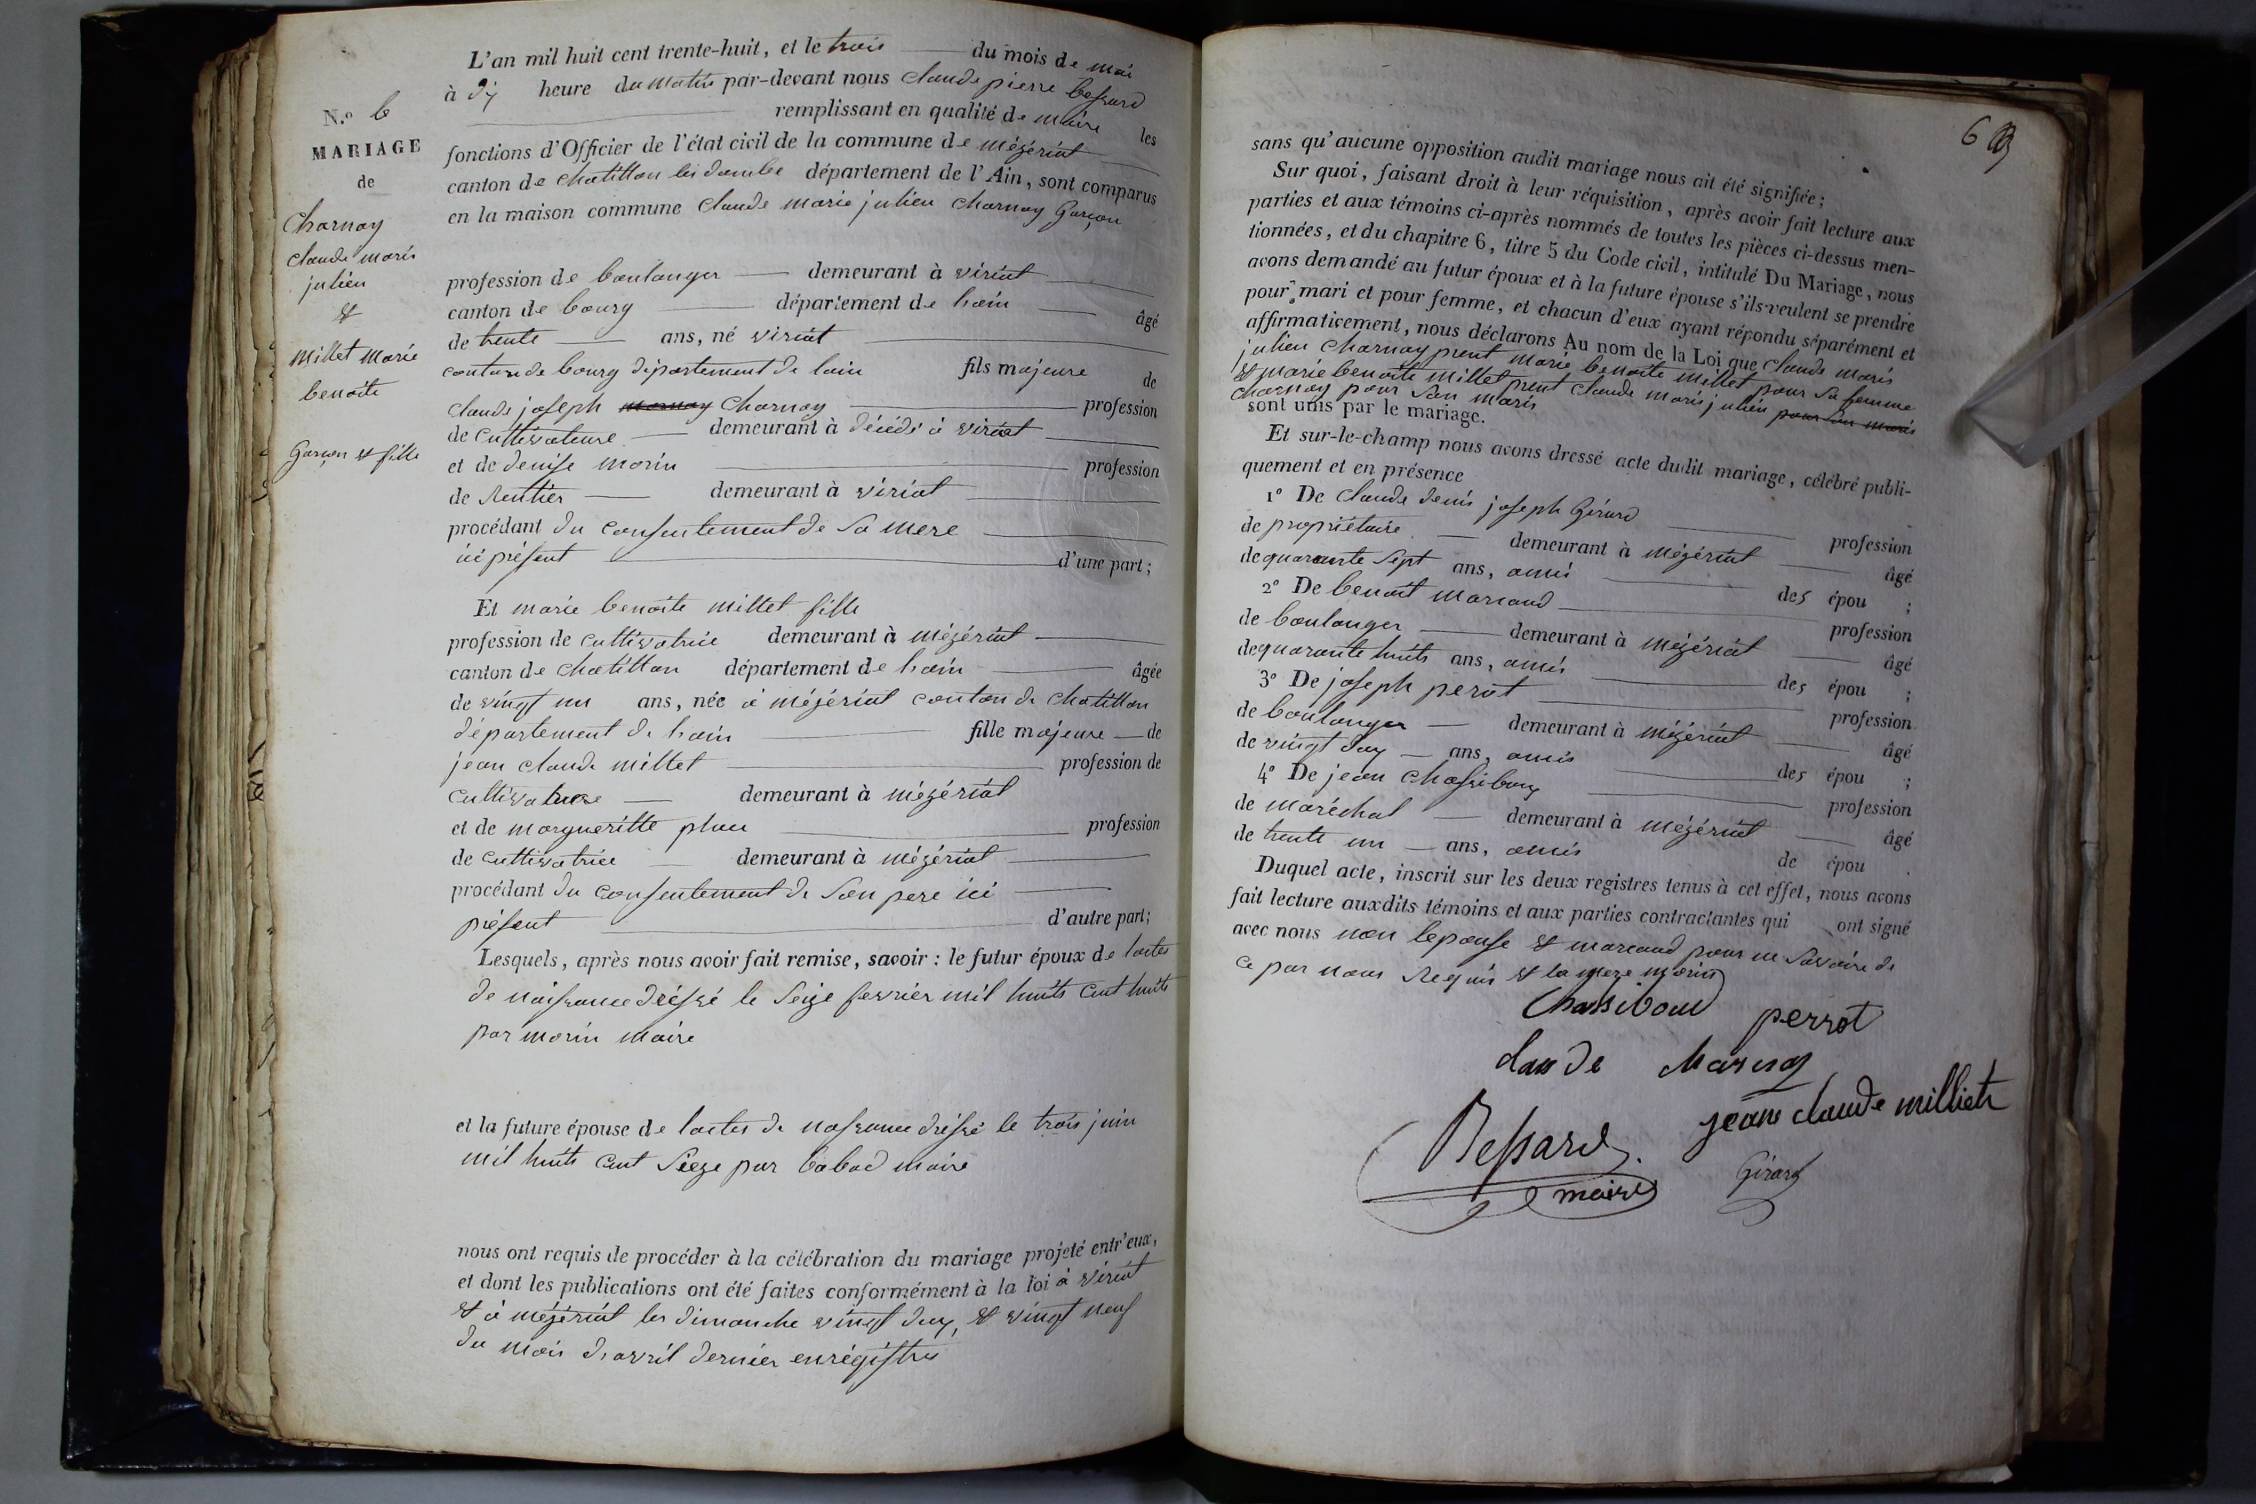 N.º 6
MARIAGE
de
Charnay
claude marie
julien
&
Millet Marie
benoite
Garçon & fille
L'an mil huit cent trente-huit, et le trois du mois de mai
à dix heure du matin par-devant nous claude pierre bessard
remplissant en qualité de maire les
fonctions d'Officier de l'état civil de la commune de mézériat
canton de chatillon les dombe département de l'Ain, sont comparus
en la maison commune claude marie julien charnay Garçon
profession de boulanger demeurant à viriat
canton de bourg département de lain âgé
de trente ans, né viriat
canton de bourg département de lain fils majeure de
claude joseph charnay profession
de cultivateure demeurant à décédé à viriat
et de denise morin profession
de rentier demeurant à viriat
procédant du consentement de sa mere
ici présent d'une part;
Et marie benoite millet fille
profession de cultivatrice demeurant à mézériat
canton de chatillon département de lain âgée
de vingt un ans, née à mézériat canton de chatillon
département de lain fille majeure de
jean claude millet profession de
cultivateure demeurant à mézériat
et de margueritte profession
de cultivatrice demeurant à mézériat
procédant du consentement de son pere ici
présent d'autre part;
Lesquels, après nous avoir fait remise, savoir: le futur époux de lactes
de naissance dréssé le seize fevrier mil huits cent huits
par morin maire
et la future épouse de lactes de naissance dréssé le trois juin
mil huits cent seize par babad maire
nous ont requis de procéder à la célébration du mariage projeté entr'eux,
et dont les publications ont été faites conformément à la loi à viriat
& à mézériat les dimanche vingt deux, & vingt neuf
du mois d'avril dernier enrégistres
6
sans qu'aucune opposition audit mariage nous ait été signifiée;
Sur quoi, faisant droit à leur réquisition, après avoir fait lecture aux
parties et aux témoins ci-après nommés de toutes les pièces ci-dessus men-
tionnées, et du chapitre 6, titre 5 du Code civil, intitulé Du Mariage, nous
avons demandé au futur époux et à la future épouse s'ils veulent se prendre
pour mari et pour femme, et chacun d'eux ayant répondu séparément et
affirmativement, nous déclarons Au nom de la Loi que claude marie
julien charnay prent marie benoite millet pour sa femme
& marie benoite millet prent claude marie julien pour son maris
charnay pour son maris
sont unis par le mariage.
Et sur-le-champ nous avons dressé acte dudit mariage, célébré publi-
quement et en présence
1º De claude denis joseph Girard profession
de propriétaire demeurant à mézériat âgé
de quarante sept ans, amis des épou ;
2º De benoit marcaud profession
de boulanger demeurant à mézériat âgé
de quarante huits ans, amis des épou ;
3º De joseph perot profession
de boulanger demeurant à mézériat âgé
de vingt dux ans, amis des épou ;
4º De jean profession
de maréchal demeurant à mézériat âgé
de trente un ans, amis de épou .
Duquel acte, inscrit sur les deux registres tenus à cet effet, nous avons
fait lecture auxdits témoins et aux parties contractantes qui ont signé
avec nous non lepouse & marcaud pour ne savoire de
ce par nous requis & la mere morin
Chassiboud perrot
claude
jeans claude milliet
Bessard
maire
Girard